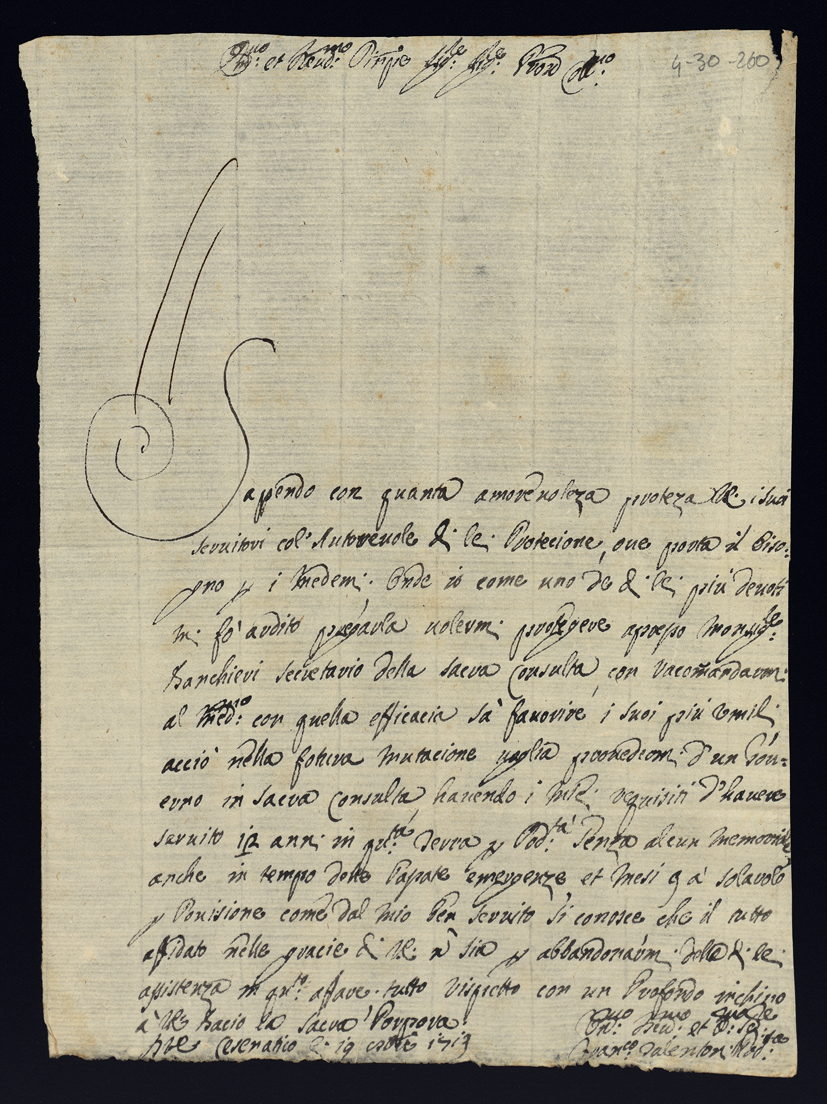 Em:mo et Reud:mo Prñpe Sig:re Sig:re Pron Col:mo 4-30-260
Sapendo con quanta amoreuoleza proteza VE: i suoi
seruitori col' Autoreuole di lei Protecione, oue porta il biso:
gno p i medemi: Onde io come uno de di lei più deuoti
mi fò ardito pregarla uolermi protegere apresso Monsig:re
Banchieri secretario della sacra Consulta, con racomãndarmi
al Med:mo con quella efficacia sà fauorire i suoi più Vmili
acciò nella fotura Mutacione uoglia prouedermi d'un Gou=
erno in sacra Consulta hauendo i miei requisiti d'hauere
seruito 12 anni in qu:ta Terra p Pod:tà senza alcun Memoriale
anche in tempo delle Passate emergenze, et Mesi 9 à solarolo
p Prouisione come dal mio Ben seruito si conosce che il tutto
affidato nelle gracie di VE: ñ sia p abbandonarmi della di lei
assistenza in qu:to affare. tutto rispetto con un Profondo inchino
à VE: Bacio la Sacra Porpora:
Cesenatico li 19 1713
Vm:mo Deu:mo et
Franc:o Valentini Pod:tà